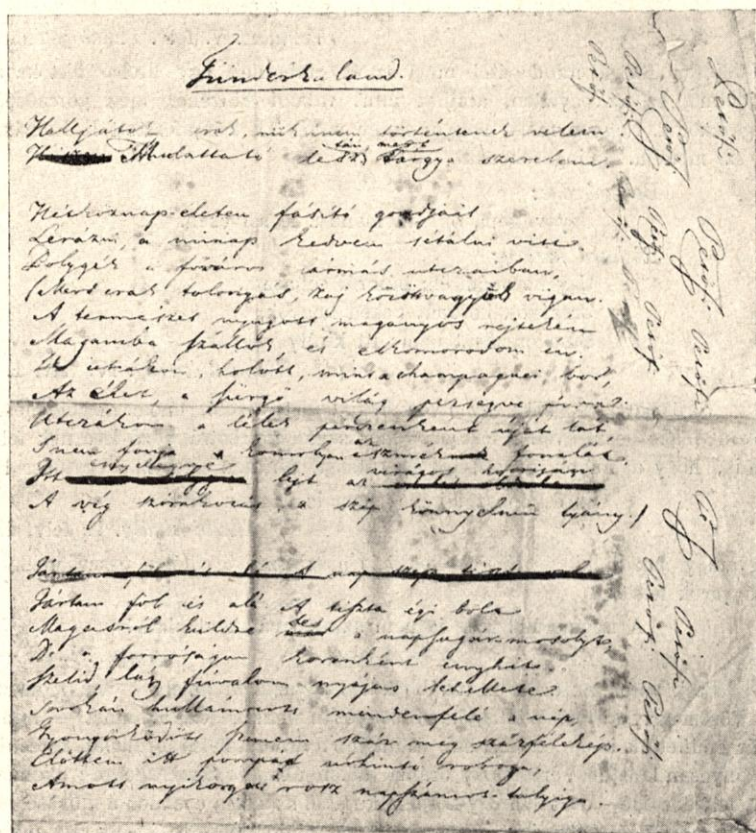 Tündérkaland.
Halljátok csak, mik nem történtenek velem
tán, mert
Mulattató lesz, tárgya szerelem.
Hétköznap életem fásító gondjait
Lerázni, a minap kedvem sétálni vitt
Bolygék a főváros lármás utczaiban,
(Mert csak tolongás, zaj között vagyok vigan.
A természet nyugott magányos rejtekén
Magamba szállok és elkomorodom én.
De utczákon, holott, mint a champagnei bor,
Az élet, a fürgő világ pezsegve forr:
Utczákon a lélek perczenként ujat lát
S nem fonja a komolyan eszmék fonalát.
Itt lejt az virágos
A vég szórakozás, a szép könnyelmü lyány.)
Jártam föl és alá A nap szép tiszta
Jártam föl és alá A tiszta égi bolt
Magasról külde les a napsugár mosolyt,
De a forróságon koronként enyhit
Szelid lágy fúvalom nyájas lehellete
Sürökán hullámzott mindenfelé a nép,
Gyönyörködött szemem száz meg százfelekép.
Előttem itt pompás uri hintó robog,
Amott nyikorgva rosz napszámos taliga.
Petőfi
Petőfi Petőfi Petőfi
Petőfi Petőfi Petőfi
Petőfi Petőfi
Petőfi Petőfi